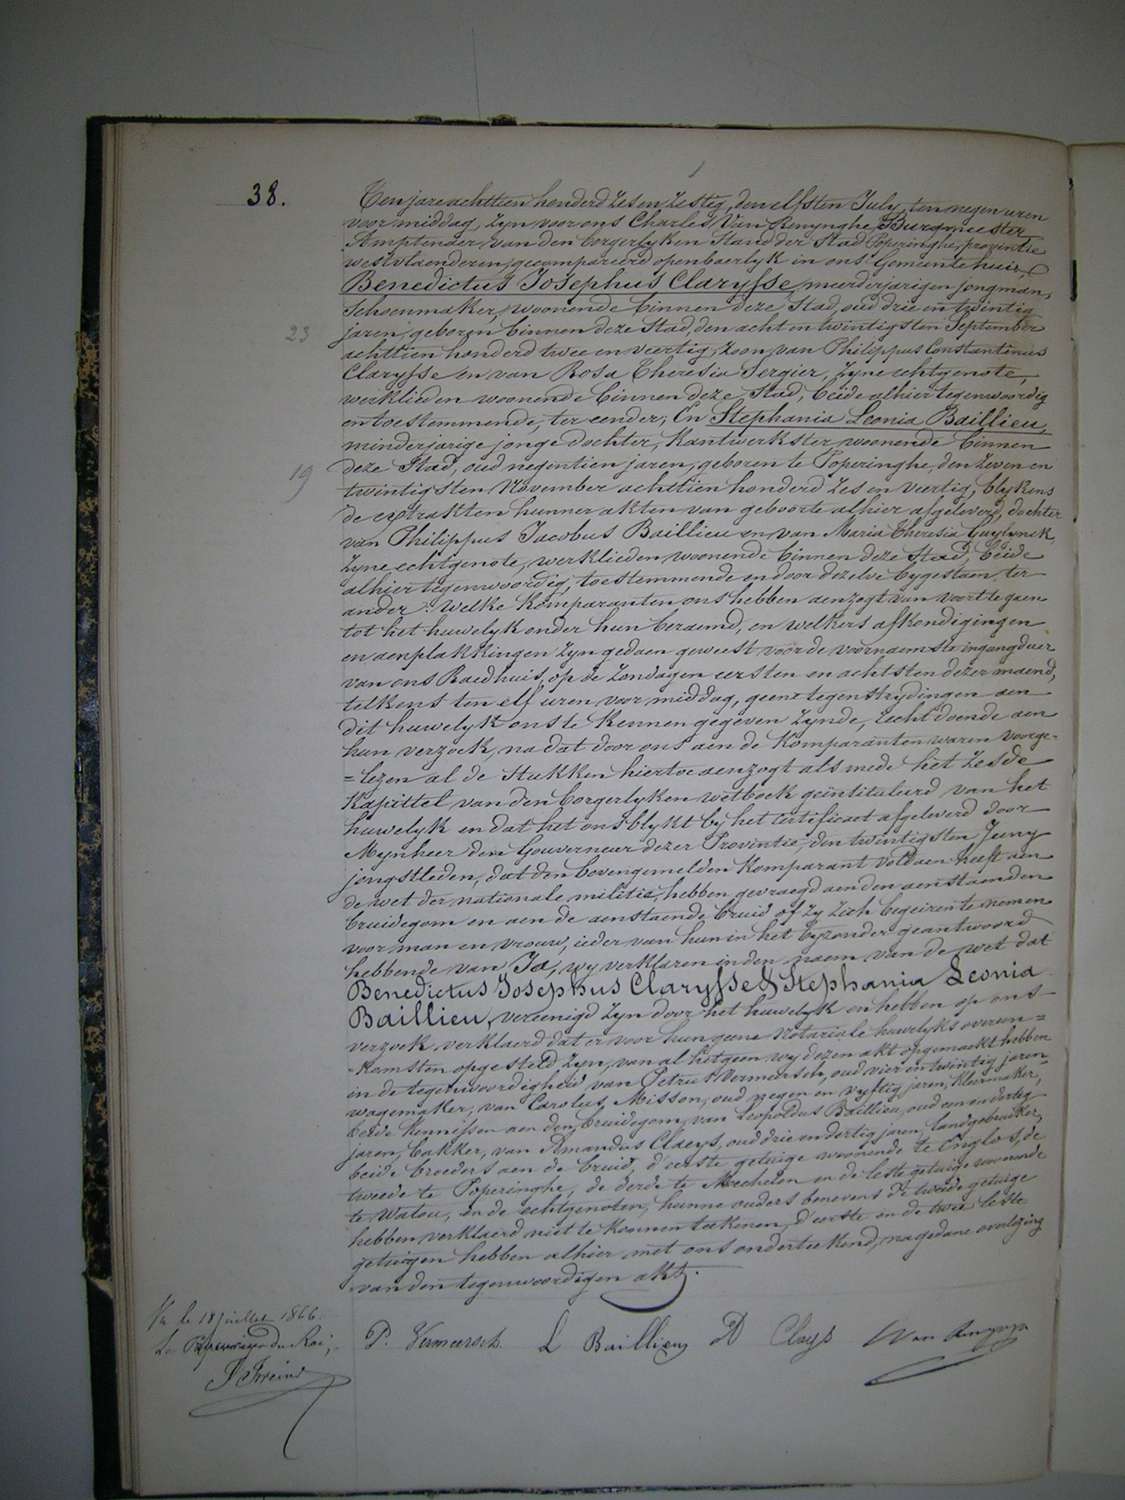 38.
Ten jare achttien honderd zes en zestig, den elfsten July, ten negen uren
voor middag, zyn voor ons Charles Van Renynghe, Burgmeester
Amptenaer van den borgerlyken Stand der Stad Poperinghe, provintie
westvlaenderen, gecompareerd openbaerlyk in ons Gemeentehuis,
Benedictus Josephus Clarysse, meerderjarigen jongman,
Schoenmaker, woonende binnen deze Stad, oud drie en twintig
23
jaren, geboren binnen deze Stad, den acht en twintigsten September
achttien honderd twee en veertig, Zoon van Philippus Constantinus
Clarysse en van Rosa Theresia Sergier, zyne echtgenote,
werklieden woonende binnen deze Stad, beide alhier tegenwoordig
en toestemmende, ter eender; En Stephania Leonia Baillieu,
minderjarige jonge dochter, kantwerkster, woonende binnen
deze Stad, oud negentien jaren, geboren te Poperinghe, den zeven en
19
twintigsten November achttien honderd zes en veertig, blykens
de extrakten hunner akten van geboorte alhier afgeleverd, dochter
van Philippus Jacobus Baillieu en van Maria Theresia
zyne echtgenote, werklieden woonende binnen deze Stad, beide
alhier tegenwoordig, toestemmende en door dezelve bygestaen, ter
ander: welke komparanten ons hebben aenzogt van voort te gaen
tot het huwelyk onder hun beraemd, en welkers afkondigingen
en aenplakkingen zyn gedaen geweest voor de voornaemste ingangdeur
van ons Raedhuis, op de Zondagen eersten en achtsten dezer maend,
telkens ten elf uren voor middag, geene tegenstrydingen aen
dit huwelyk ons te kennen gegeven zynde, recht doende aen
hun verzoek, na dat door ons aen de Komparanten waren voorge=
=lezen al de Stukken hiertoe aenzogt als mede het zesde
Kapittel van den borgerlyken wetboek geintituleerd van het
huwelyk en dat het ons blykt by het certificaet afgeleverd door
Mynheer den Gouverneur dezer Provintie, den twintigsten Juny
jongstleden, dat den bovengemelden Komparant voldaen heeft aen
de wet der nationale militie, hebben gevraegd aen den aenstaenden
bruidegom en aen de aenstaende bruid of zy zich begeiren te nemen
voor man en vrouw, ieder van hun in het byzonder geantwoord
hebbende van Ja, wy verklaren in den naem van de wet dat
Benedictus Josephus Clarysse & Stephania Leonia
Baillieu, vereenigd zyn door het huwelyk en hebben op ons
verzoek verklaerd dat er voor hun geene notariale huwelyks overeen=
=komsten opgesteld zyn, van al hetgeen wy dezen akt opgemaekt hebben
in de tegenwoordigheid van Petrus Vermeersch, oud vier en twintig jaren,
wagemaker, van Carolus Misson, oud negen en vyftig jaren, kleermaker,
beide kennissen aen den bruidegom, van Leopoldus Baillieu, oud een en dertig
jaren, bakker, van Amandus Claeys, oud drie en dertig jaren, landgebruiker,
beide broeders aen de bruid, d'eerste getuige woonende te
tweede te Poperinghe, de derde te Mechelen en de leste getuige woonende
te Watou, en de echtgenoten, hunne ouders benevens de tweede getuige
hebben verklaerd niet te konnen teekenen, d'eerste en de twee leste
getuigen hebben alhier met ons onderteekend, na gedane overlezing
van den tegenwoordigen akt.
Vu le 18 juillet 1866.
Le Procureur du Roi,
P. Vermeersch L Baillieu Claeys Van Renynghe